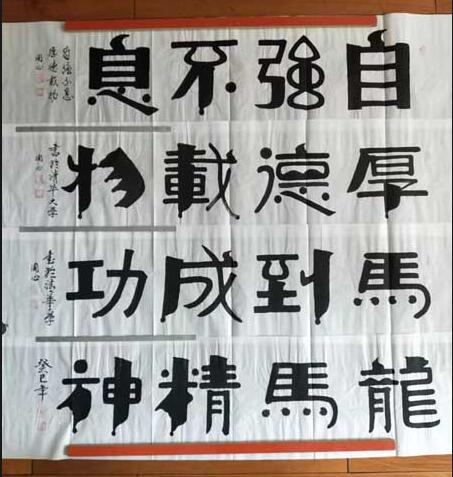 自強不息
自強不息
厚德載物
厚德載物
書於清華大學
馬到成功
書於清華大學
龍馬精神
癸巳年